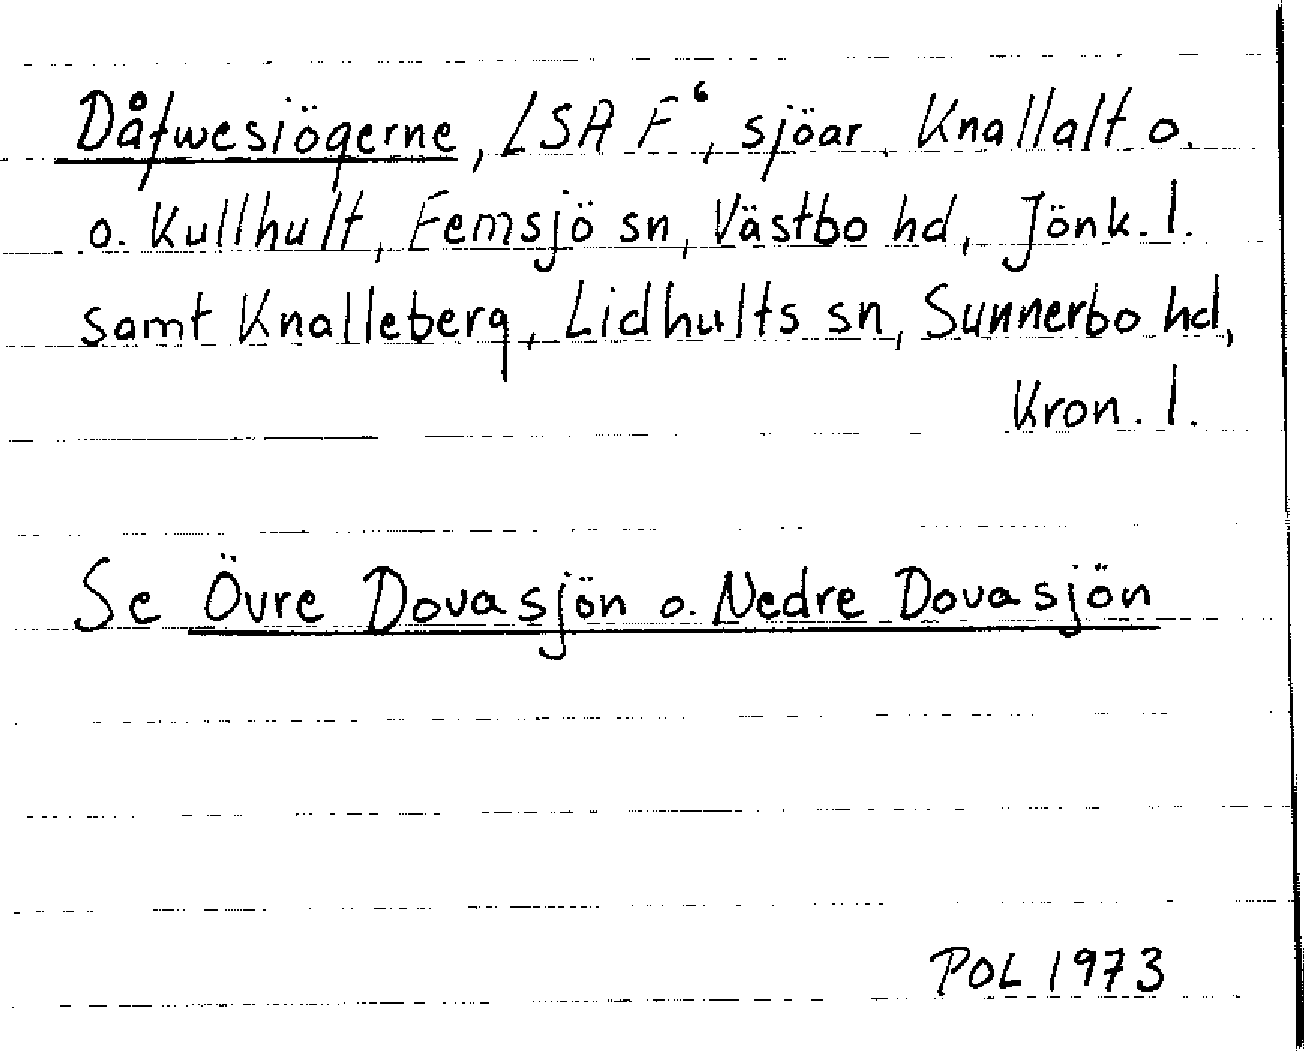 Dåfwesiögerne, LSA F⁶, sjöar. Knallalt o.
o. Kullhult, Femsjö sn, Västbo hd, Jönk. l.
samt Knalleberg, Lidhults sn, Sunnerbo hd,
Kron. l.
Se Övre Dovasjön o. Nedre Dovasjön
POL 1973